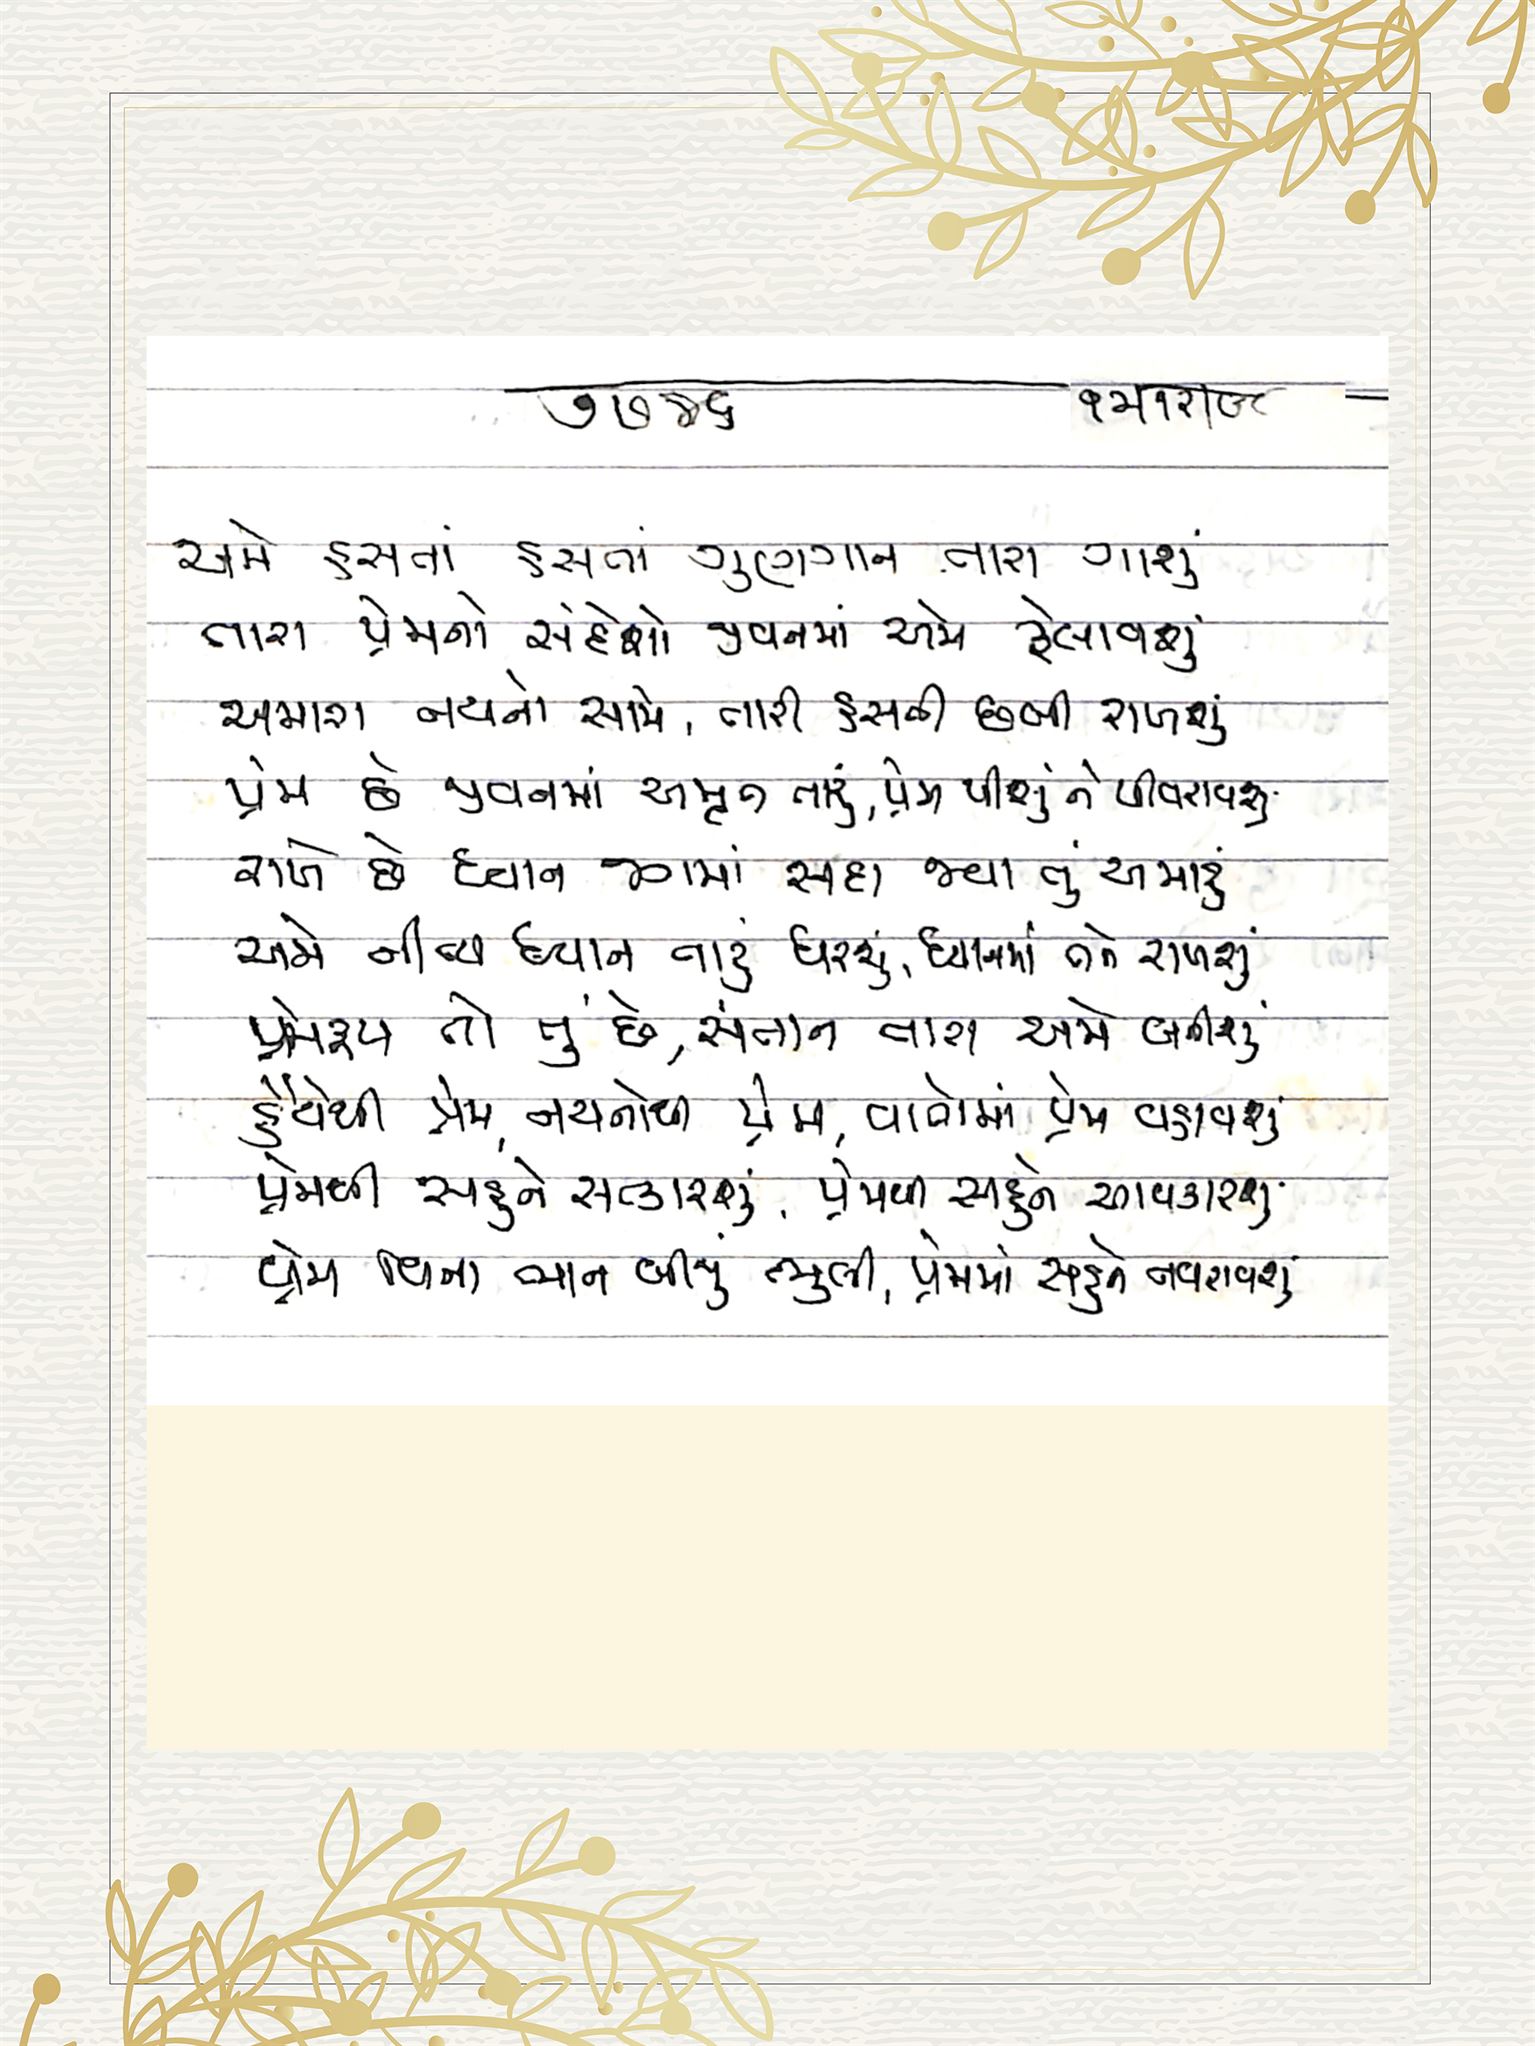 ૭૭૪૬
અમે હસતાં હસતાં ગુણગાન તારા ગાશું
તારા પ્રેમનો સંદેશો જીવનમાં અમે ફેલાવશું
અમારા નયનો સામે, તારી હસતી છબી રાખશું
પ્રેમ છે જીવનમાં અમૃત તારું, પ્રેમ પીશું ને પીવરાવશું
રાખે છે ધ્યાન જગમાં સદા જ્યાં તું અમારું
અમે નીત્ય ધ્યાન તારું ધરશું, ધ્યાનમાં તને રાખશું
પ્રેમરૂપ તો તું છે, સંતાન તારા અમે બનીશું
હૈયેથી પ્રેમ, નયનોથી પ્રેમ, વાણીમાં પ્રેમ વહાવશું
પ્રેમથી સહુને સત્કારશું, પ્રેમથી સહુને આવકારશું
પ્રેમ વિના ભાન બીજું ભુલી, પ્રેમમાં સહુને નવરાવશું